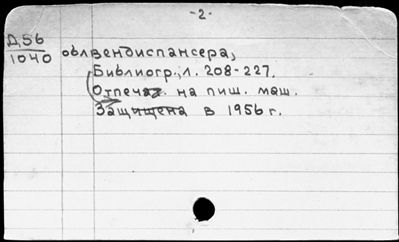 -2-
Д.56
1040 облвендиспансера,
Библиогр.; л. 208-227.
Отпеч. на пиш. маш.
Защищена в 1956 г.